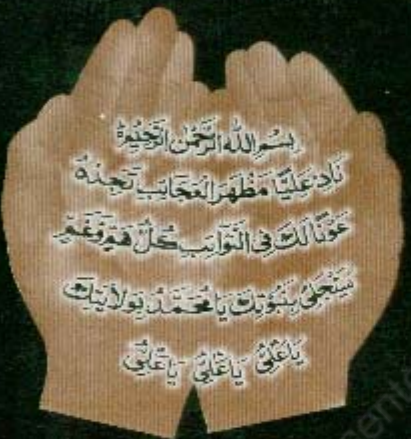 بِسْمِ اللهِ الرَّحْمٰنِ الرَّحِيْمِ
نَادِ عَلِيًّا مَظْهَرَ الْعَجَائِبِ تَجِدْهُ
عَوْنًا لَكَ فِي النَّوَائِبِ كُلُّ هَمٍّ وَغَمٍّ
سَيَنْجَلِي بِنُبُوَّتِكَ يَا مُحَمَّدُ بِوَلَايَتِكَ
يَا عَلِيُّ يَا عَلِيُّ يَا عَلِيُّ